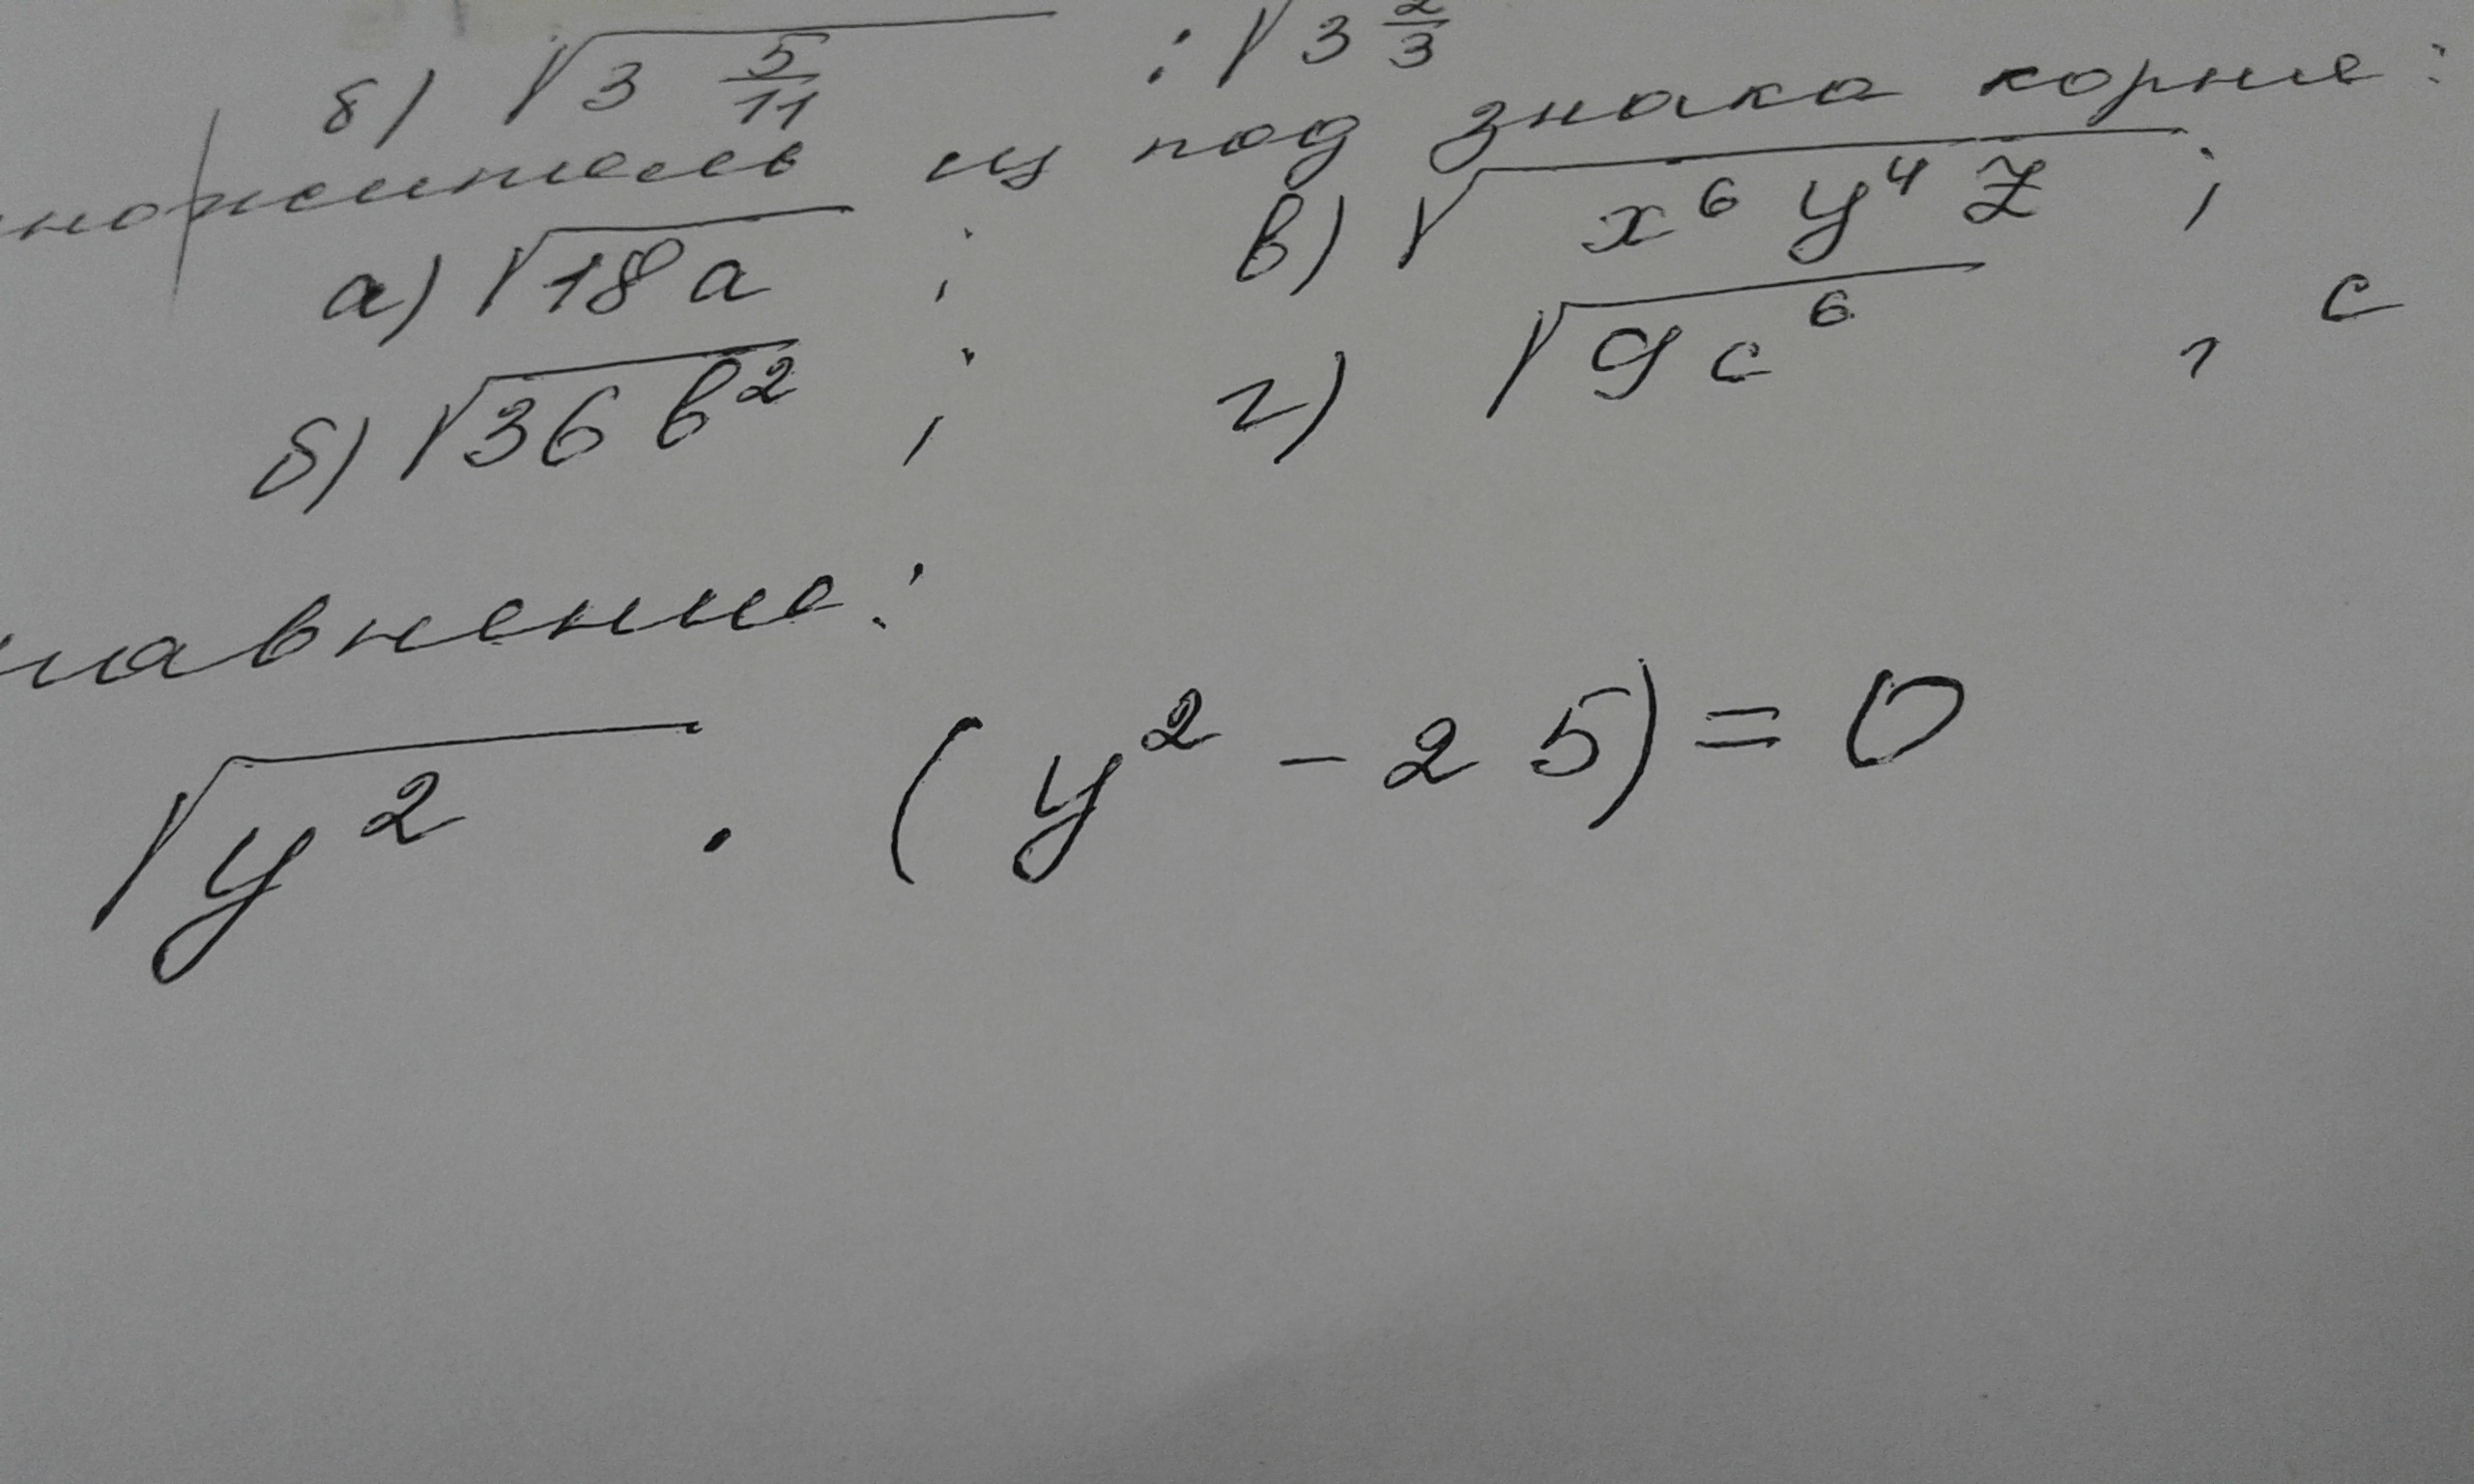 б) √3 5/11 : √3 2/3
множитель из под знака корня:
а) √18a ; в) √x⁶y⁴z ;
б) √36b² ; г) √9c⁶ , c
√y² · (y² - 25) = 0